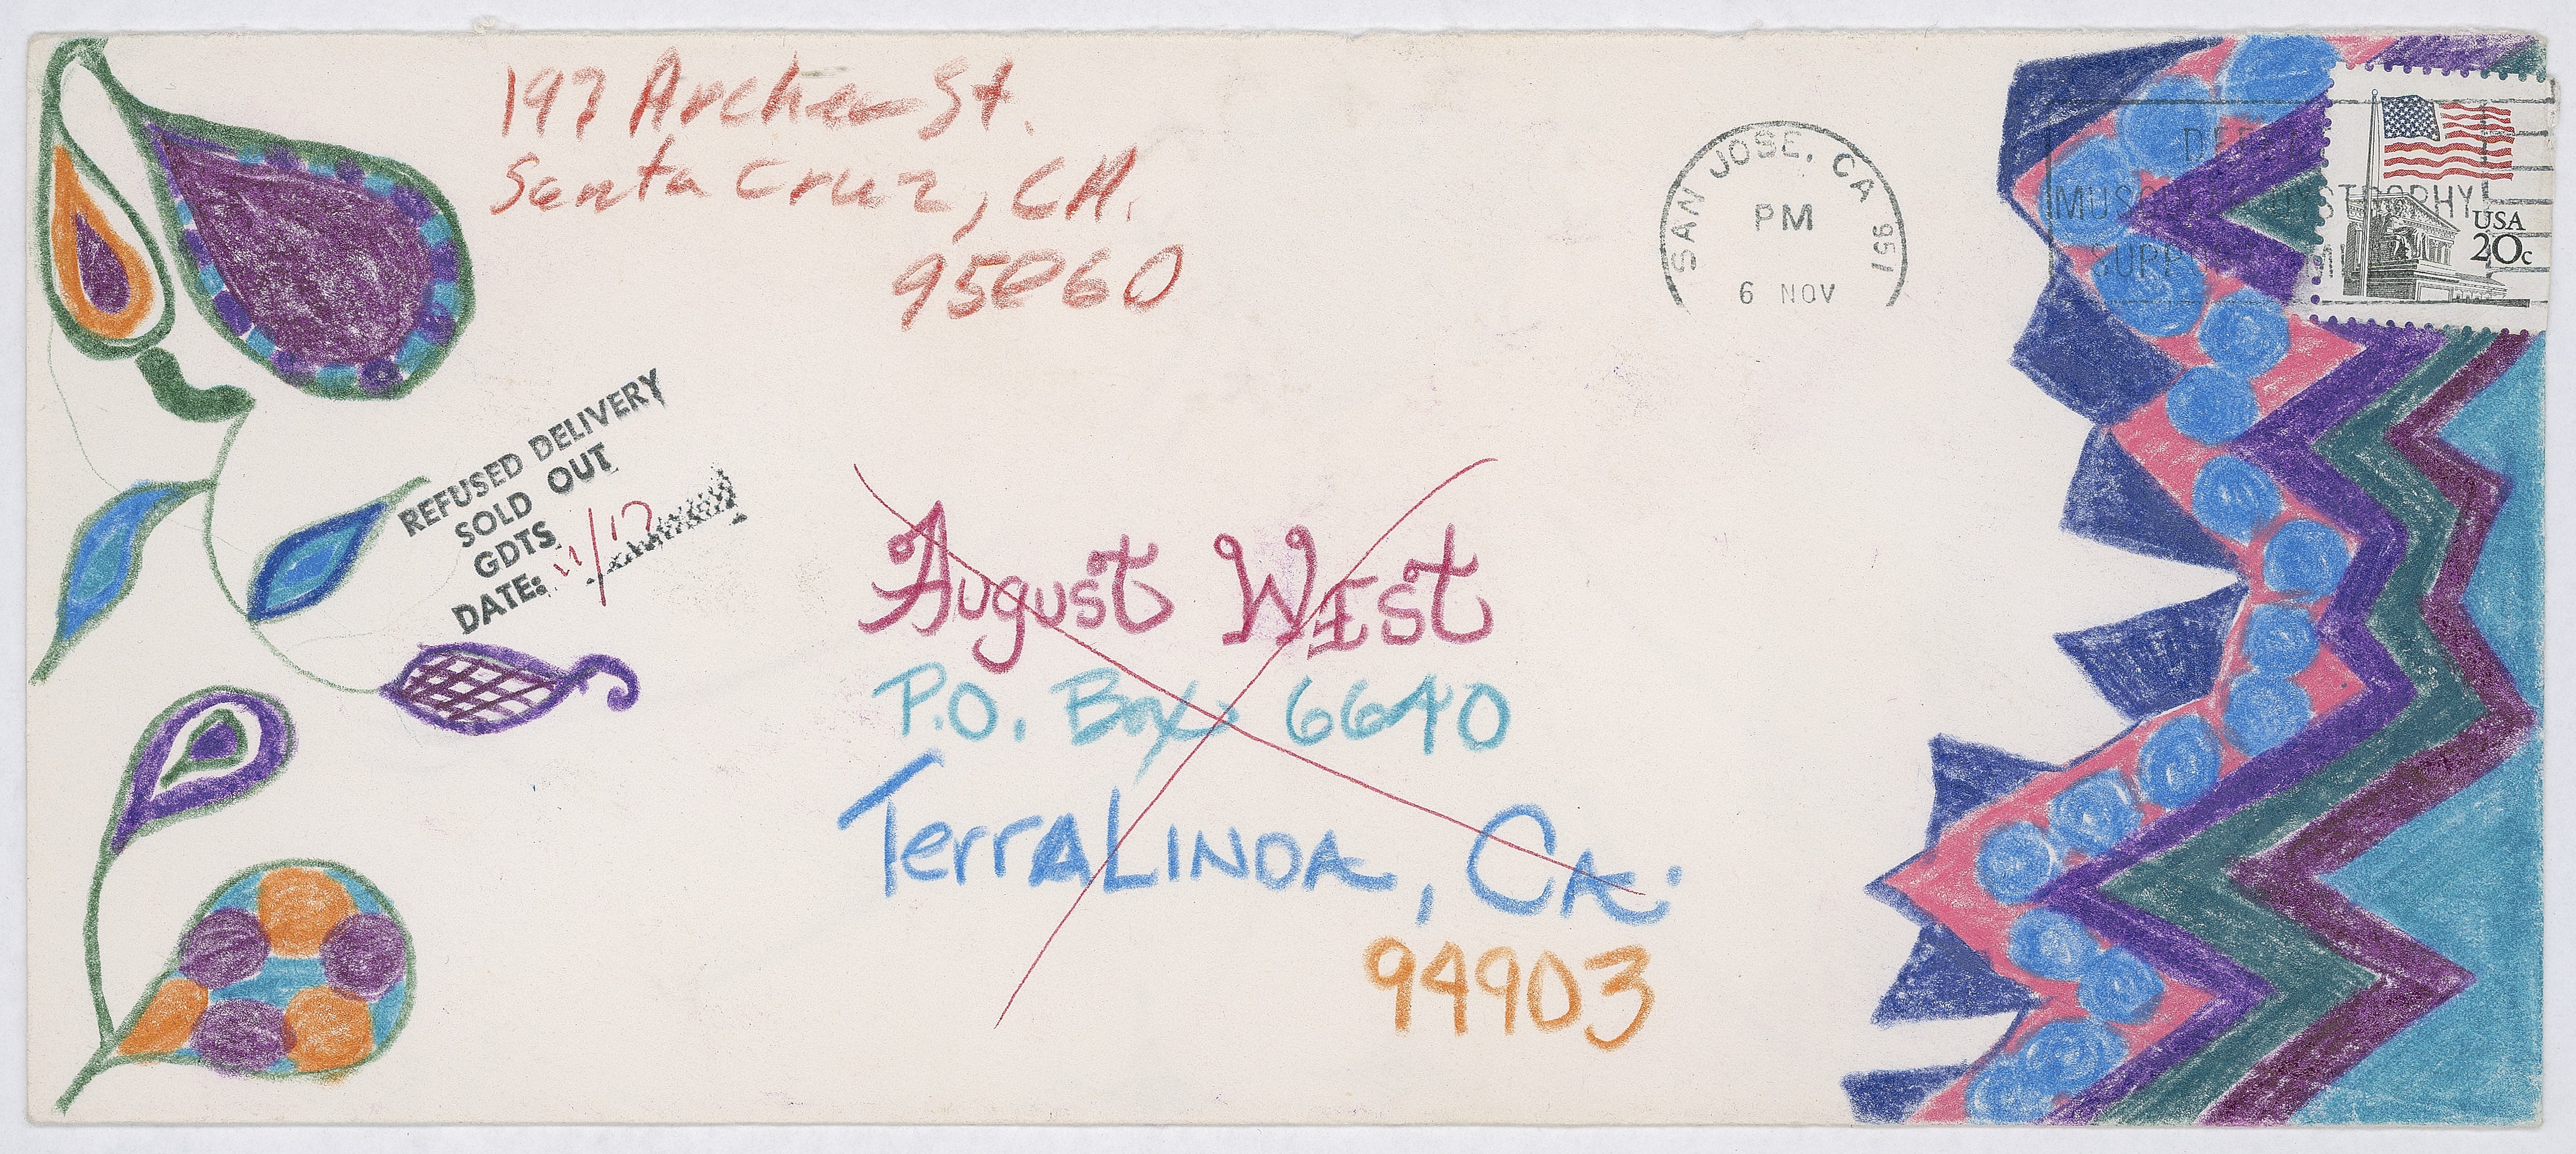 197 Archer St.
Santa Cruz, CA.
95060
SAN JOSE, CA 951
PM
6 NOV
MUSCULAR DYSTROPHY
SUPPORT
USA
20c
REFUSED DELIVERY
SOLD OUT
GDTS
DATE: 11/17
August West
P.O. Box 6640
TerrA LINDA, CA.
94903